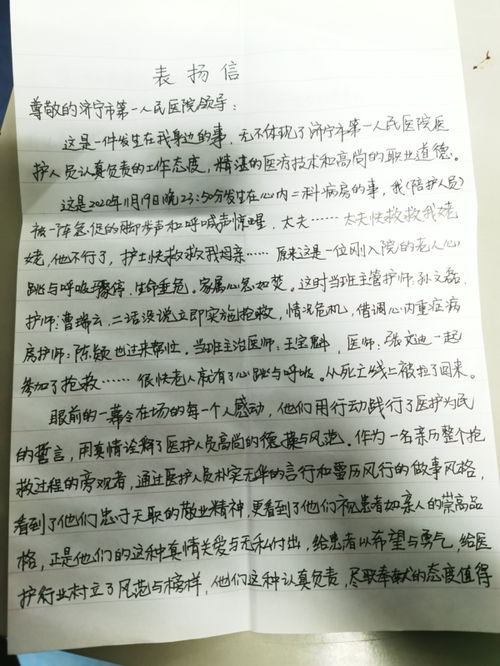 表扬信
尊敬的济宁市第一人民医院领导：
这是一件发生在我身边的事，无不体现了济宁市第一人民医院医
护人员认真负责的工作态度，精湛的医疗技术和高尚的职业道德。
这是2020年11月19日晚23:50分发生在心内二科病房的事，我(陪护人员)
被一阵急促的脚步声和呼喊声惊醒，大夫……大夫快救救我姥
姥，他不行了，护士快救救我母亲……原来这是一位刚入院的老人心
跳与呼吸骤停，生命垂危。家属心急如焚。这时当班主管护师：孙文磊
护师：曹瑞云，二话没说立即实施抢救，情况危机，借调心内重症病
房护师：陈颖也过来帮忙。当班主治医师：王宝魁，医师：张文迪一起
参加了抢救……很快老人就有了心跳与呼吸。从死亡线上被拉了回来。
眼前的一幕令在场的每一个人感动，他们用行动践行了医护为民
的誓言，用真情诠释了医护人员高尚的德操与风范。作为一名亲历整个抢
救过程的旁观者，通过医护人员朴实无华的言行和雷厉风行的做事风格，
看到了他们忠于天职的敬业精神，更看到了他们视患者如亲人的崇高品
格，正是他们的这种真情关爱与无私付出，给患者以希望与勇气，给医
护行业树立了风范与榜样，他们这种认真负责，尽职奉献的态度值得